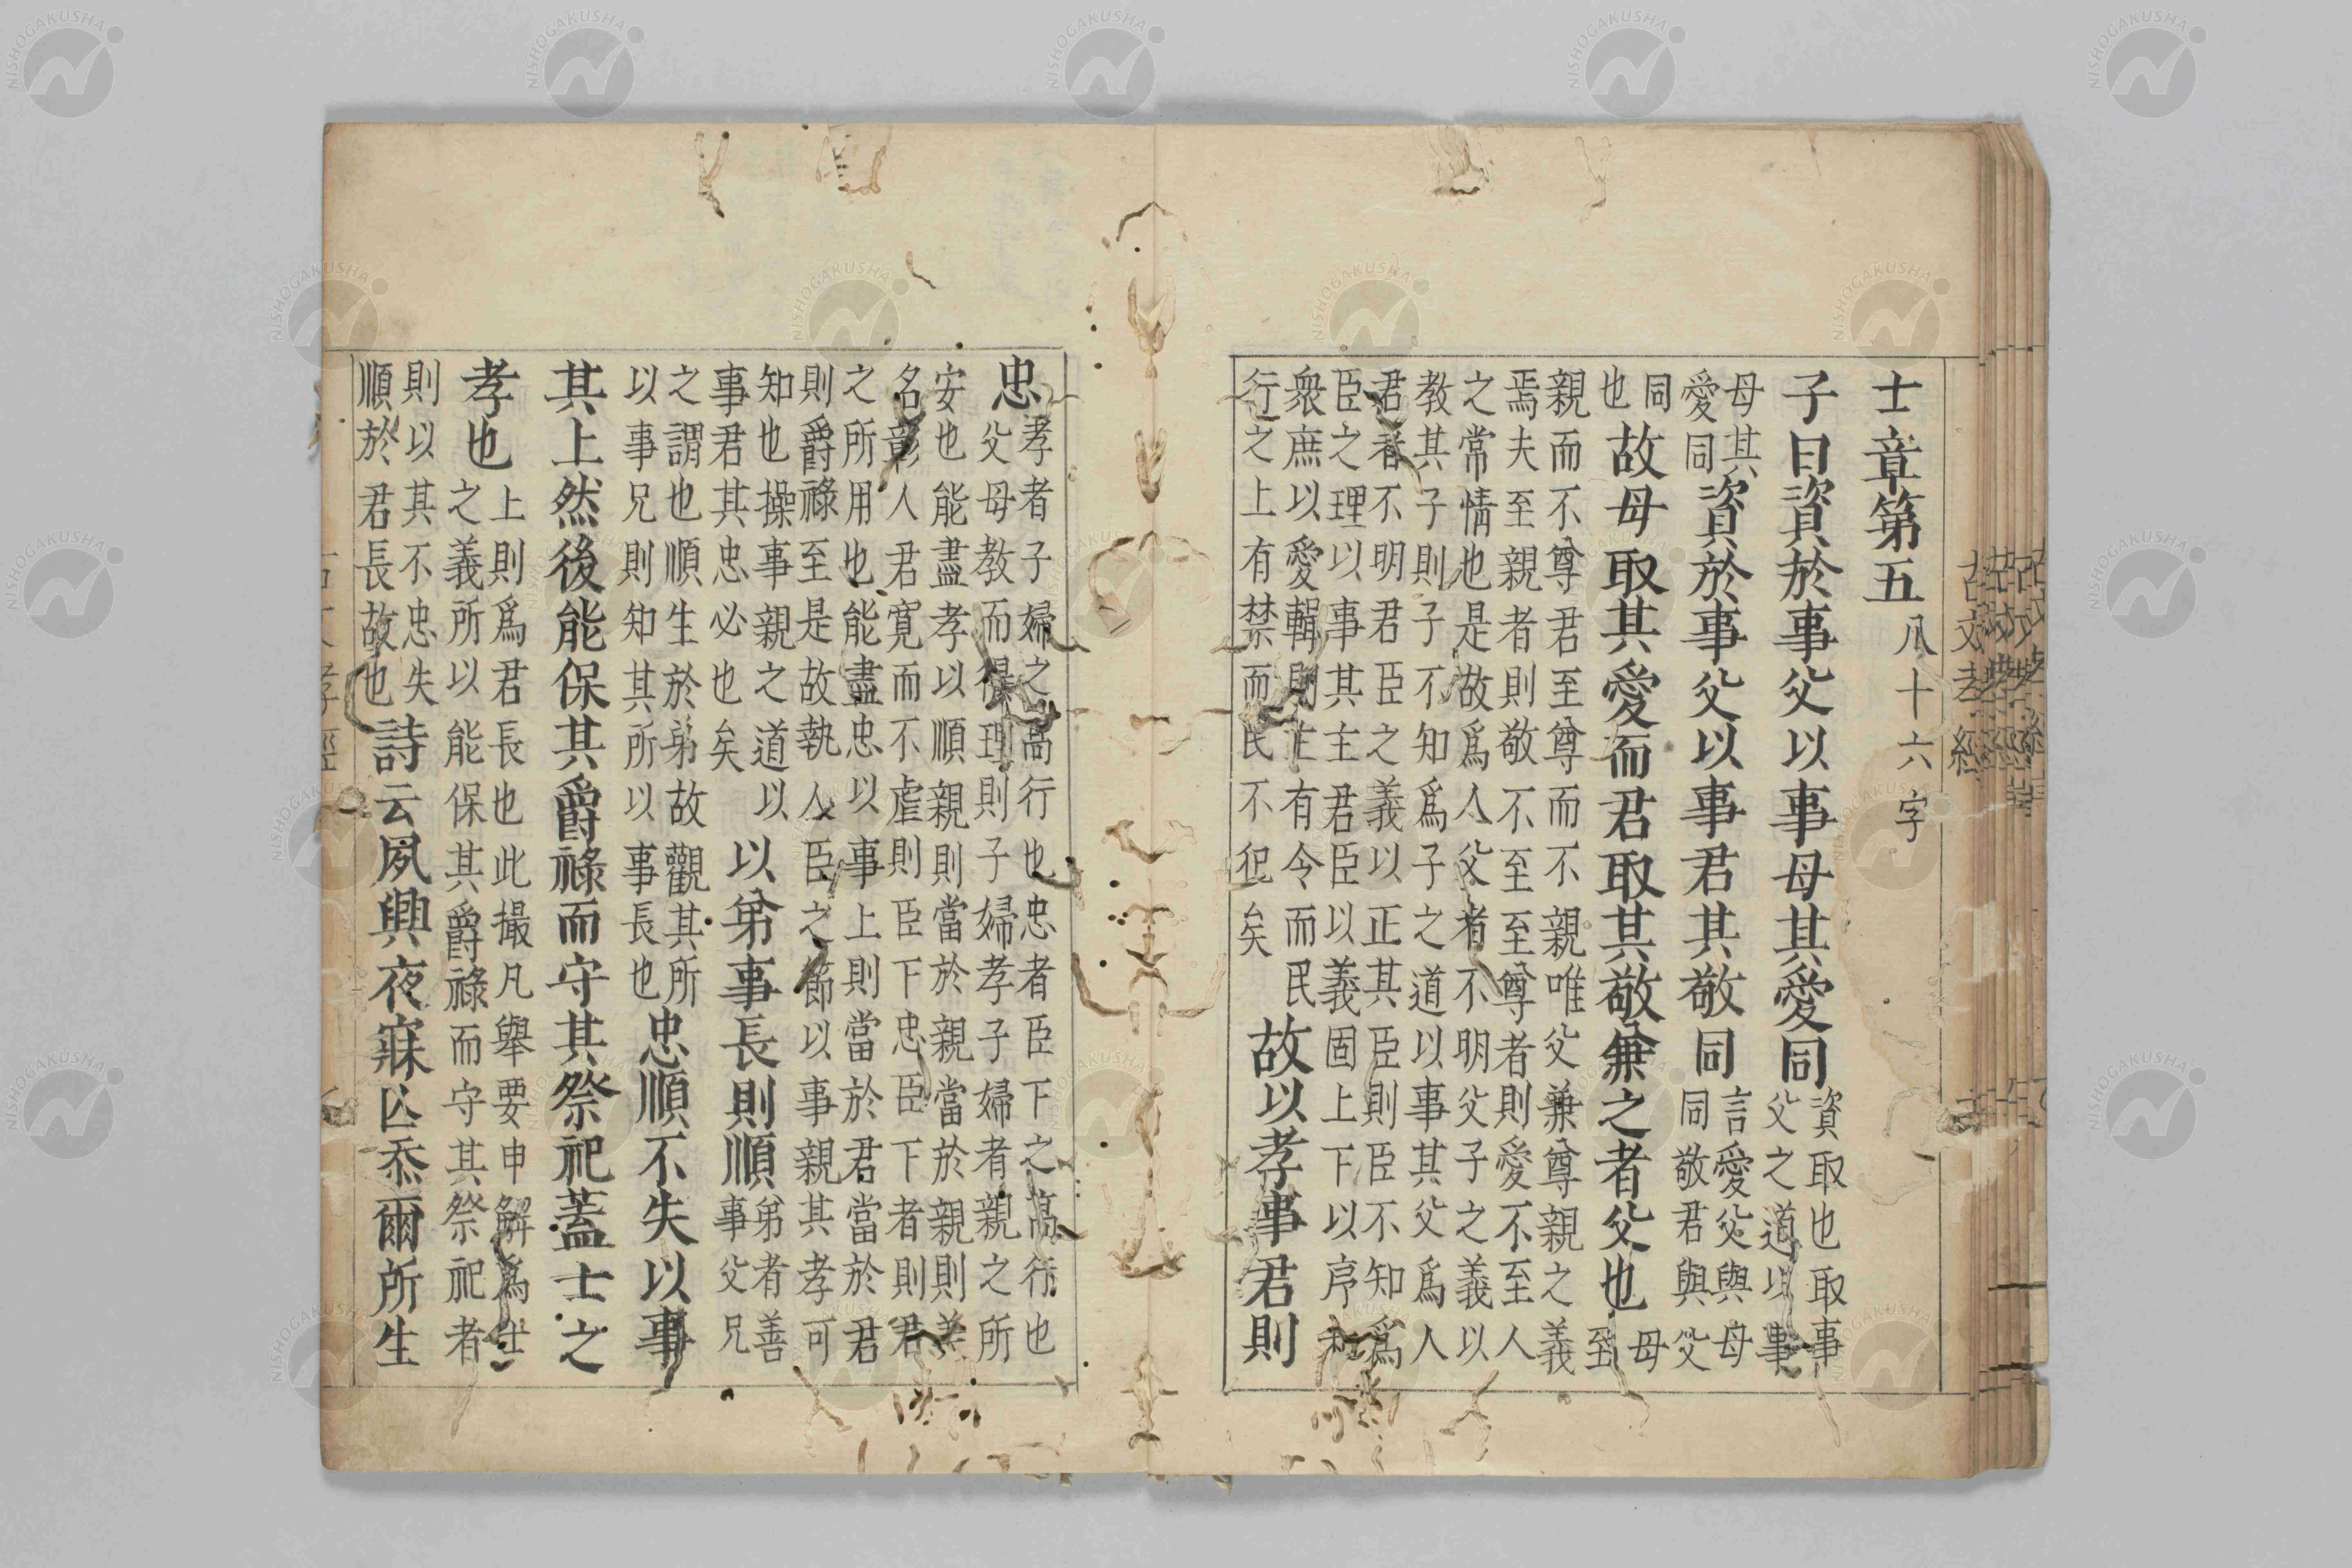 士章第五八十六字
子曰資於事父以事母其愛同資取也取事
父之道以事
母其
愛同資於事父以事君其敬同言愛父與母
同敬君與父
同
也故母取其愛而君取其敬兼之者父也母
至
親而不尊君至尊而不親唯父兼尊親之義
焉夫至親者則敬不至至尊者則愛不至人
之常情也是故爲人父者不明父子之義以
教其子則子不知爲子之道以事其父爲人
君者不明君臣之義以正其臣則臣不知爲
臣之理以事其主君臣以義固上下以序和
衆庶以愛輯則主有令而民
行之上有禁而民不犯矣故以孝事君則
忠孝者子婦之高行也忠者臣下之高行也
父母教而得理則子婦孝子婦者親之所
安也能盡孝以順親則當於親當於親則美
名彰人君寬而不虐則臣下忠臣下者則君
之所用也能盡忠以事上則當於君當於君
則爵祿至是故執人臣之節以事親其孝可
知也操事親之道以
事君其忠必也矣以弟事長則順弟者善
事父兄
之謂也順生於弟故觀其所
以事兄則知其所以事長也忠順不失以事
其上然後能保其爵祿而守其祭祀蓋士之
孝也上則爲君長也此撮凡舉要申解爲士
之義所以能保其爵祿而守其祭祀者
則以其不忠失
順於君長故也詩云夙興夜寐亡忝爾所生
古文孝經